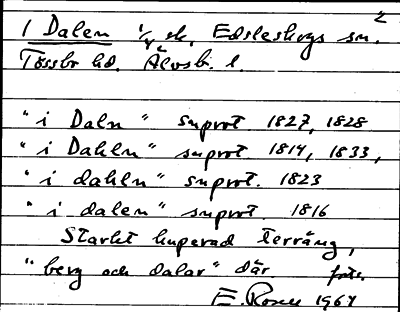 2
1 Dalen 1/4 sk, Edsleskogs sn.
Tössbo hd. Älvsb. l.
"i Daln" snprot 1827, 1828
"i Dahln" snprot. 1814, 1833,
"i dahln" snprot. 1823
"i dalen" snprot. 1816
Starkt kuperad terräng,
"berg och dalar" där. forts.
E. Rosell 1964